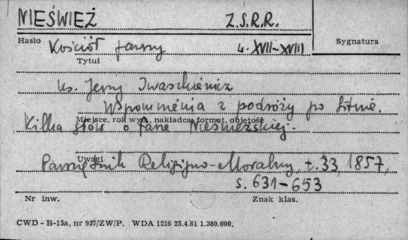 NIEŚWIEŻ Z.S.R.R.
Hasło Kościół farny w. XVII-XVIII Sygnatura
Tytuł
ks. Jerzy Iwaszkiewicz
Wspomnienia z podróży po Litwie.
Miejsce, rok wyd., nakładca, format, objętość
Kilka słów o farze Nieświeżskiej.
Uwagi
Pamiętnik Religijno-Moralny, t. 33, 1857,
s. 631-653
Nr inw. Znak klas.
CWD - B-15a, nr 937/ZW/P. WDA 1216 23.4.61 1.380.000.